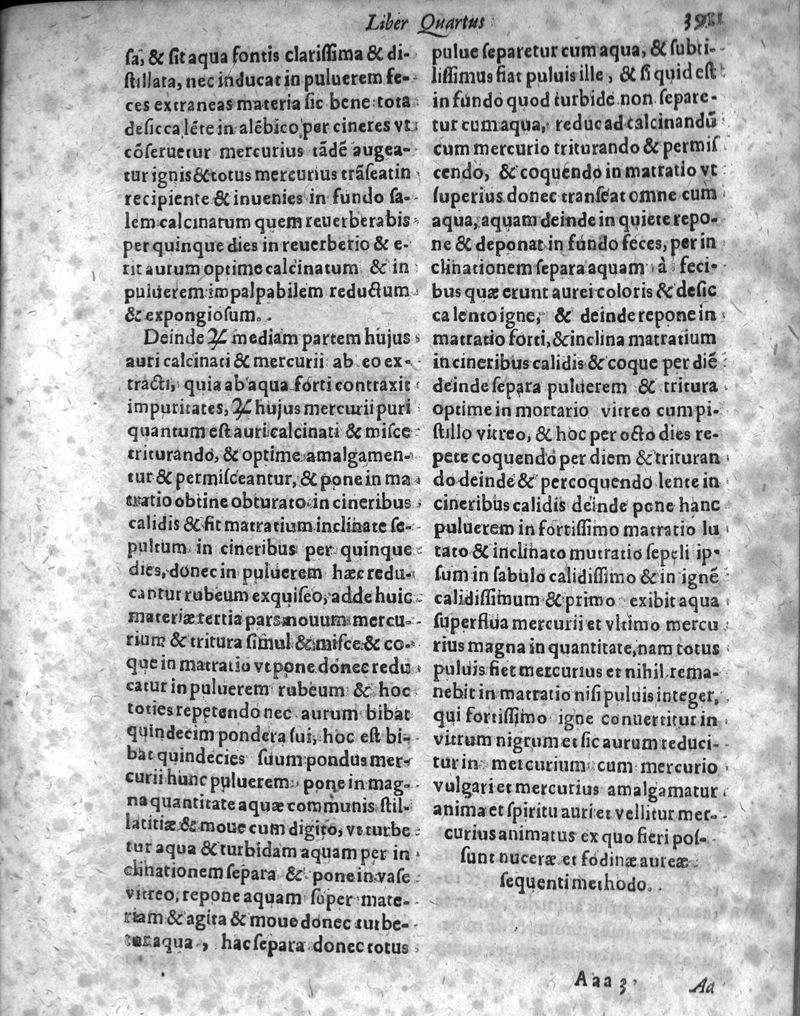 Liber Quartus
sa, & sit aqua fontis clarissima & di-
stillata, nec inducat in puluerem fe-
ces extraneas materia sic bene tota
desicca lẽte in alẽbico, per cineres vt
cõseruetur mercurius tãdẽ augea-
tur ignis & totus mercurius trãseat in
recipiente & inuenies in fundo sa-
lem calcinatum quem reuerberabis
per quinque dies in reuerberio & e-
rit aurum optime calcinatum & in
puluerem impalpabilem reductum
& expongiosum.
Deinde ℞ mediam partem hujus
auri calcinati & mercurii ab eo ex-
tracti, quia ab aqua forti contraxit
impuritates, ℞ hujus mercurii puri
quantum est auri calcinati & misce
triturando, & optime amalgamen-
tur & permisceantur, & pone in ma
tratio obtine obturato in cineribus
calidis & fit matratium inclinate se-
pultum in cineribus per quinque
dies, donec in puluerem hæc redu-
cantur rubeum exquiseo, adde huic
materiæ tertia pars nouum mercu-
rium & tritura simul & misce & co-
que in matratio vt pone donec redu
catur in puluerem rubeum & hoc
toties repetendo nec aurum bibat
quindecim pondera sui, hoc est bi-
bat quindecies suum pondus mer-
curii hunc puluerem pone in mag-
na quantitate aquæ communis stil-
latitiæ & moue cum digito, vt turbe
tur aqua & turbidam aquam per in
clinationem separa & pone in vase
vitreo, repone aquam super mate-
riam & agita & moue donec turbe-
tur aqua, hac separa donec totus
pulue separetur cum aqua, & subti-
lissimus fiat puluis ille, & si quid est
in fundo quod turbide non separe-
tur cum aqua, reduc ad calcinandũ
cum mercurio triturando & permis
cendo, & coquendo in matratio vt
superius donec transeat omne cum
aqua, aquam deinde in quiete repo-
ne & deponat in fundo feces, per in
clinationem separa aquam à feci-
bus quæ erunt aurei coloris & desic
ca lento igne, & deinde repone in
matratio forti, & inclina matratium
in cineribus calidis & coque per diẽ
deinde separa puluerem & tritura
optime in mortario vitreo cum pi-
stillo vitreo, & hoc per octo dies re-
pete coquendo per diem & trituran
do deinde & percoquendo lente in
cineribus calidis deinde pone hanc
puluerem in fortissimo matratio lu
tato & inclinato mutratio sepeli ip-
sum in sabulo calidissimo & in ignẽ
calidissimum & primo exibit aqua
superflua mercurii et vltimo mercu
rius magna in quantitate, nam totus
puluis fiet mercurius et nihil rema-
nebit in matratio nisi puluis integer,
qui fortissimo igne conuertitur in
vitrum nigrum et sic aurum reduci-
tur in mercurium cum mercurio
vulgari et mercurius amalgamatur
anima et spiritu auri et vellitur mer-
curius animatus ex quo fieri pos-
sunt nuceræ et fodinæ aureæ
sequenti methodo.
Aaa 3 Aa